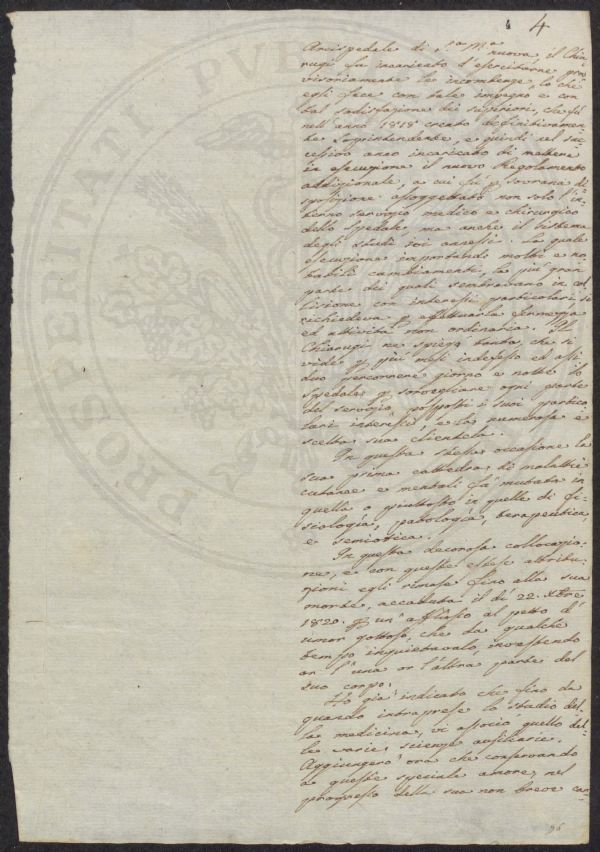 4
Arcispedale di S.ta M.a nuova, il Chia-
rugi fu incaricato d'esercitarne prov-
visoriamente le incombenze, lo che
egli fece con tale impegno e con
tal sodisfazione dei superiori, che fù
nell'anno 1818 creato definitivamen-
te Soprintendente, e quindi nel suc-
cessivo anno incaricato di mettere
in esecuzione il nuovo Regolamento
addizionale, a cui fù p sovrana di-
sposizione assoggettato non solo l'in-
terno servizio medico e chirurgico
dello Spedale, ma anche il sistema
degli studi ivi annessi. La quale
esecuzione importando molti e no-
tabili cambiamenti, la più gran
parte dei quali sembravano in col-
lisione con interessi particolari, si
richiedeva p effettuarla fermezza
ed attività non ordinaria. Il
Chiarugi ne spiegò tanta, che si
vidde p più mesi indefesso ed assi-
duo percorrere giorno e notte lo
Spedale p sorvegliare ogni parte
del servizio, posposti i suoi partico-
lari interessi, e la numerosa e
scelta sua clientela.
In questa stessa occasione la
sua prima cattedra di malattie
cutanee e mentali fù mutata in
quella o piuttosto in quelle di fi-
siologia, patologia, terapeutica,
e semiotica.
In questa decorosa collocazio-
ne, e con queste estese attribu-
zioni egli rimase fino alla sua
morte, accaduta il dì 22. Xbre
1820. p un'afflusso al petto d'
umor gottoso, che da qualche
tempo inquietavalo, investendo
or l'una or l'altra parte del
suo corpo.
Hò già indicato che fino da
quando intraprese lo studio del-
la medicina, vi associò quello del-
le varie scienze ausiliarie.
Aggiungerò ora che conservando
a queste speciale amore, nel
progresso della sua non breve car-
96
PROSPERITATI PUB